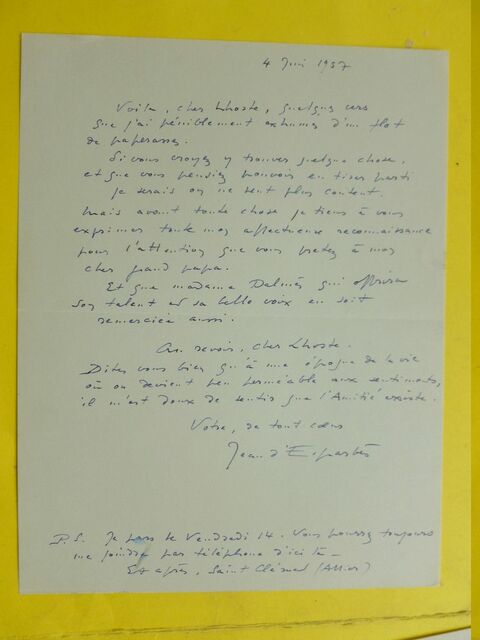 4 Juin 1957
Voilà, cher Lhoste, quelques vers
que j'ai péniblement exhumés d'un flot
de paperasses.
Si vous croyez y trouver quelque chose,
et que vous pensiez pouvoir en tirer parti
je serais on ne peut plus content.
Mais avant toute chose je tiens à vous
exprimer toute mon affectueuse reconnaissance
pour l'attention que vous portez à mon
cher grand papa.
Et que madame Dalmès qui offrira
son talent et sa belle voix en soit
remerciée aussi.
Au revoir, cher Lhoste.
Dites vous bien qu'à une époque de la vie
où on devient peu perméable aux sentiments,
il m'est doux de sentir que l'Amitié existe.
Votre, de tout cœur
Jean d'Esparbès
P.S. Je pars le Vendredi 14. Vous pourrez toujours
me joindre par téléphone d'ici là _
Et après, Saint Clément (Allier)